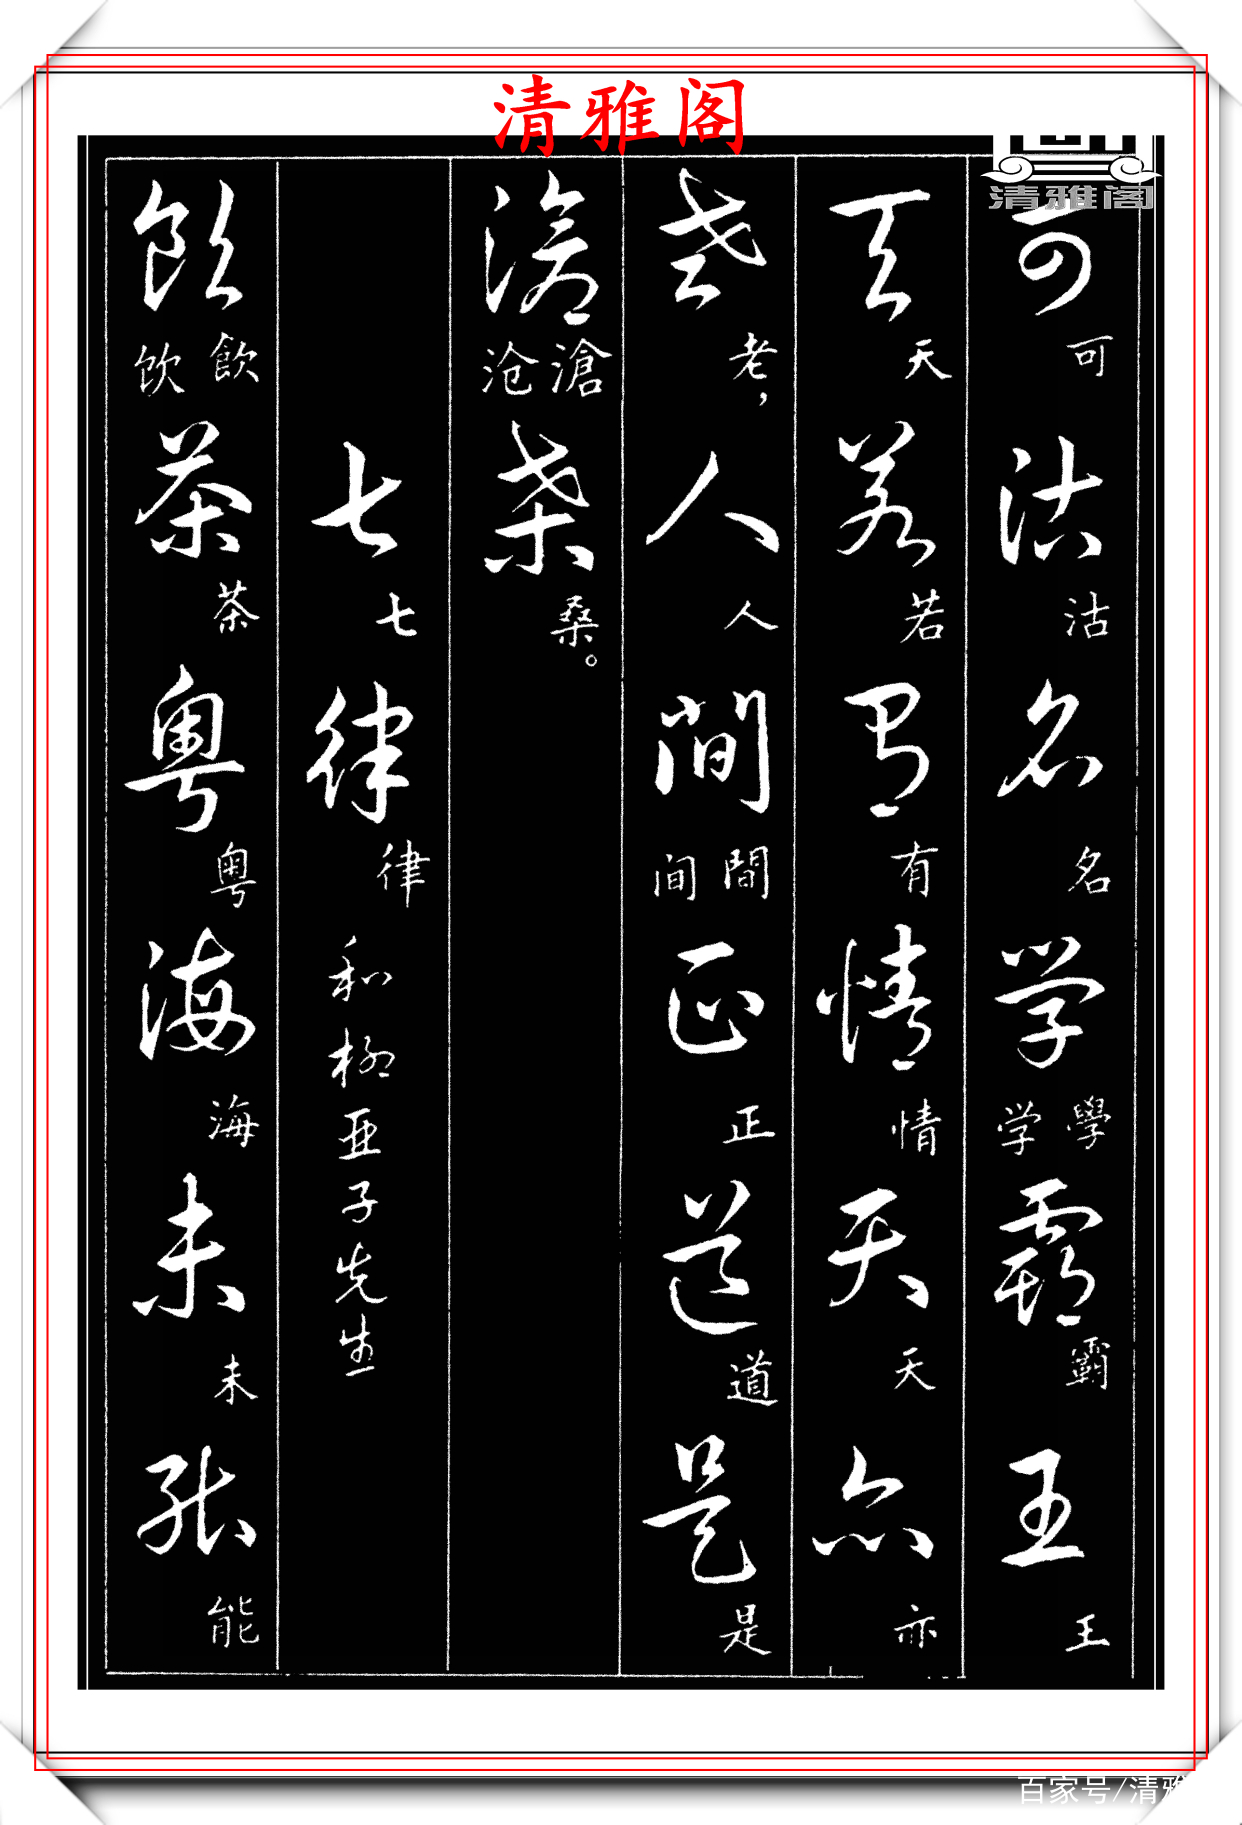 清雅阁
清雅阁
可 可 沽 沽 名 名 学 學 学 霸 霸 王 王
天 天 若 若 有 有 情 情 天 天 亦 亦
老 老， 人 人 間 間 间 正 正 道 道 是 是
滄 滄 沧 桑 桑。
七 七 律 律 和柳亚子先生
飲 飲 饮 茶 茶 粤 粤 海 海 未 未 能 能
百家号/清雅